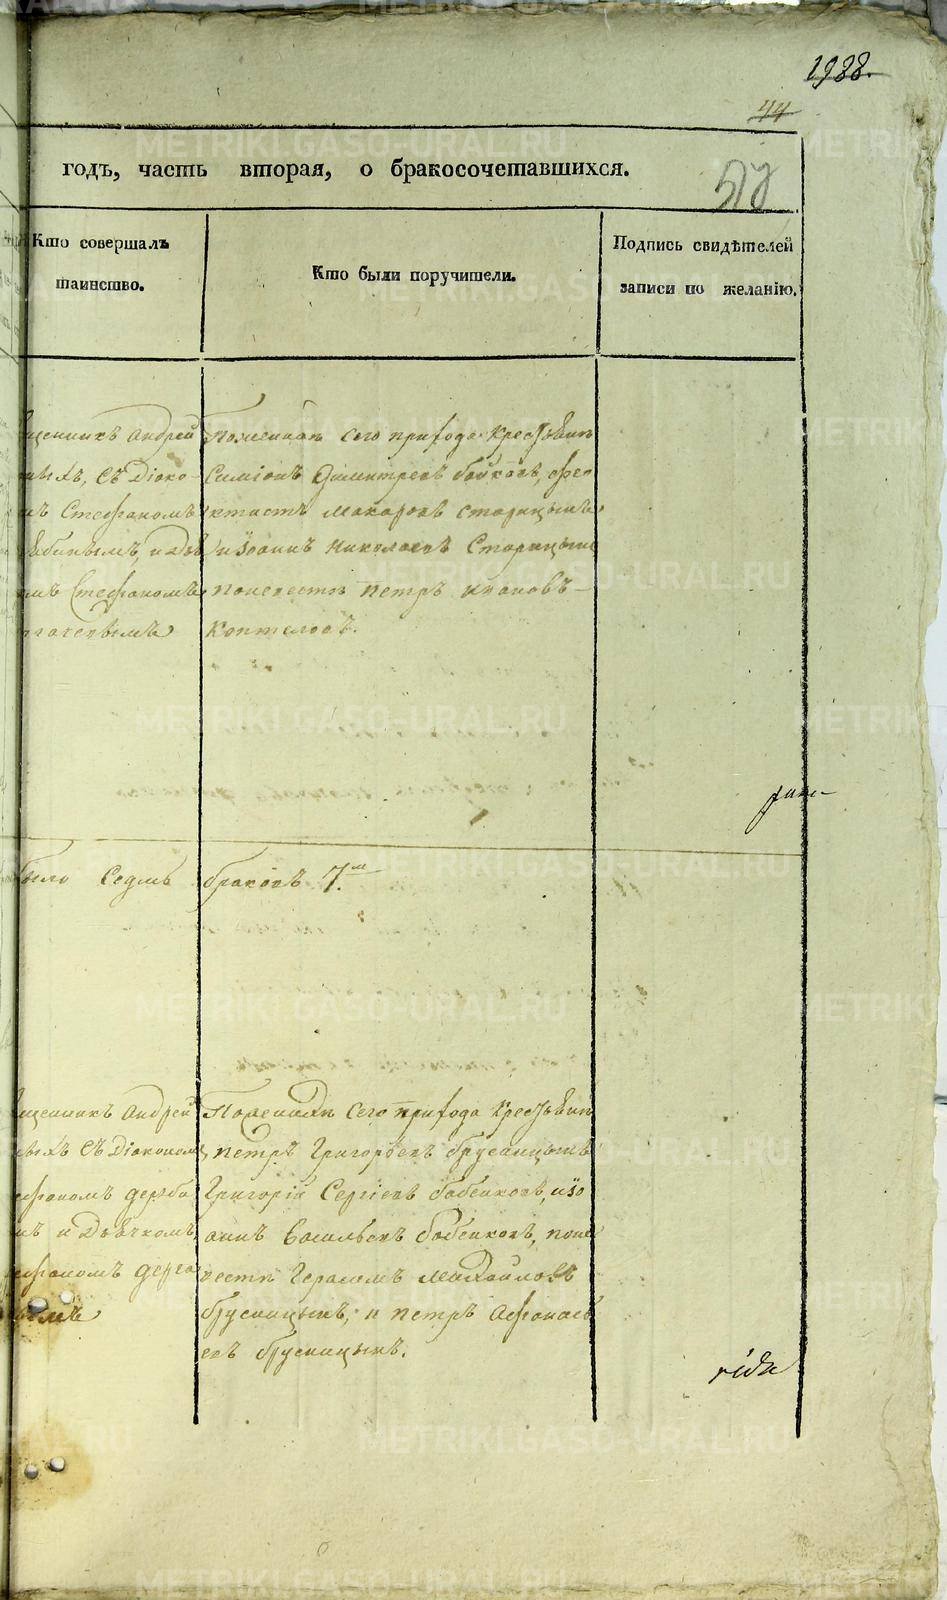 1988.
44
годъ, часть вторая, о бракосочетавшихся.
Кто совершалъ таинство.
Кто были поручители.
Подпись свидѣтелей записи по желанію.
щенникъ Андрей
ныхъ, съ Діако-
мъ Стефаномъ
мъ Стефаномъ
По женихѣ сего прихода крестьянинъ
Симіонъ Димитревъ Бойковъ, Фео
ктистъ Макаровъ Старицынъ
и Іоаннъ Николаевъ Старицынъ
по невестѣ Петръ Ивановъ
Коптеловъ.
было Седмь браковъ 7.
щенникъ Андрей
ныхъ съ Діакономъ
ефаномъ Дерба
мъ и Дьячкомъ
ефаномъ Дерга
По женихѣ сего прихода крестьянинъ
Петръ Григорьевъ Брусницынъ
Григорій Сергіевъ Бабенковъ, и Іо
аннъ Васильевъ Бабенковъ, по не
вестѣ Герасимъ Михайловъ
Брусницынъ, и Петръ Афонась
евъ Брусницынъ.
METRIKI.GASO-URAL.RU